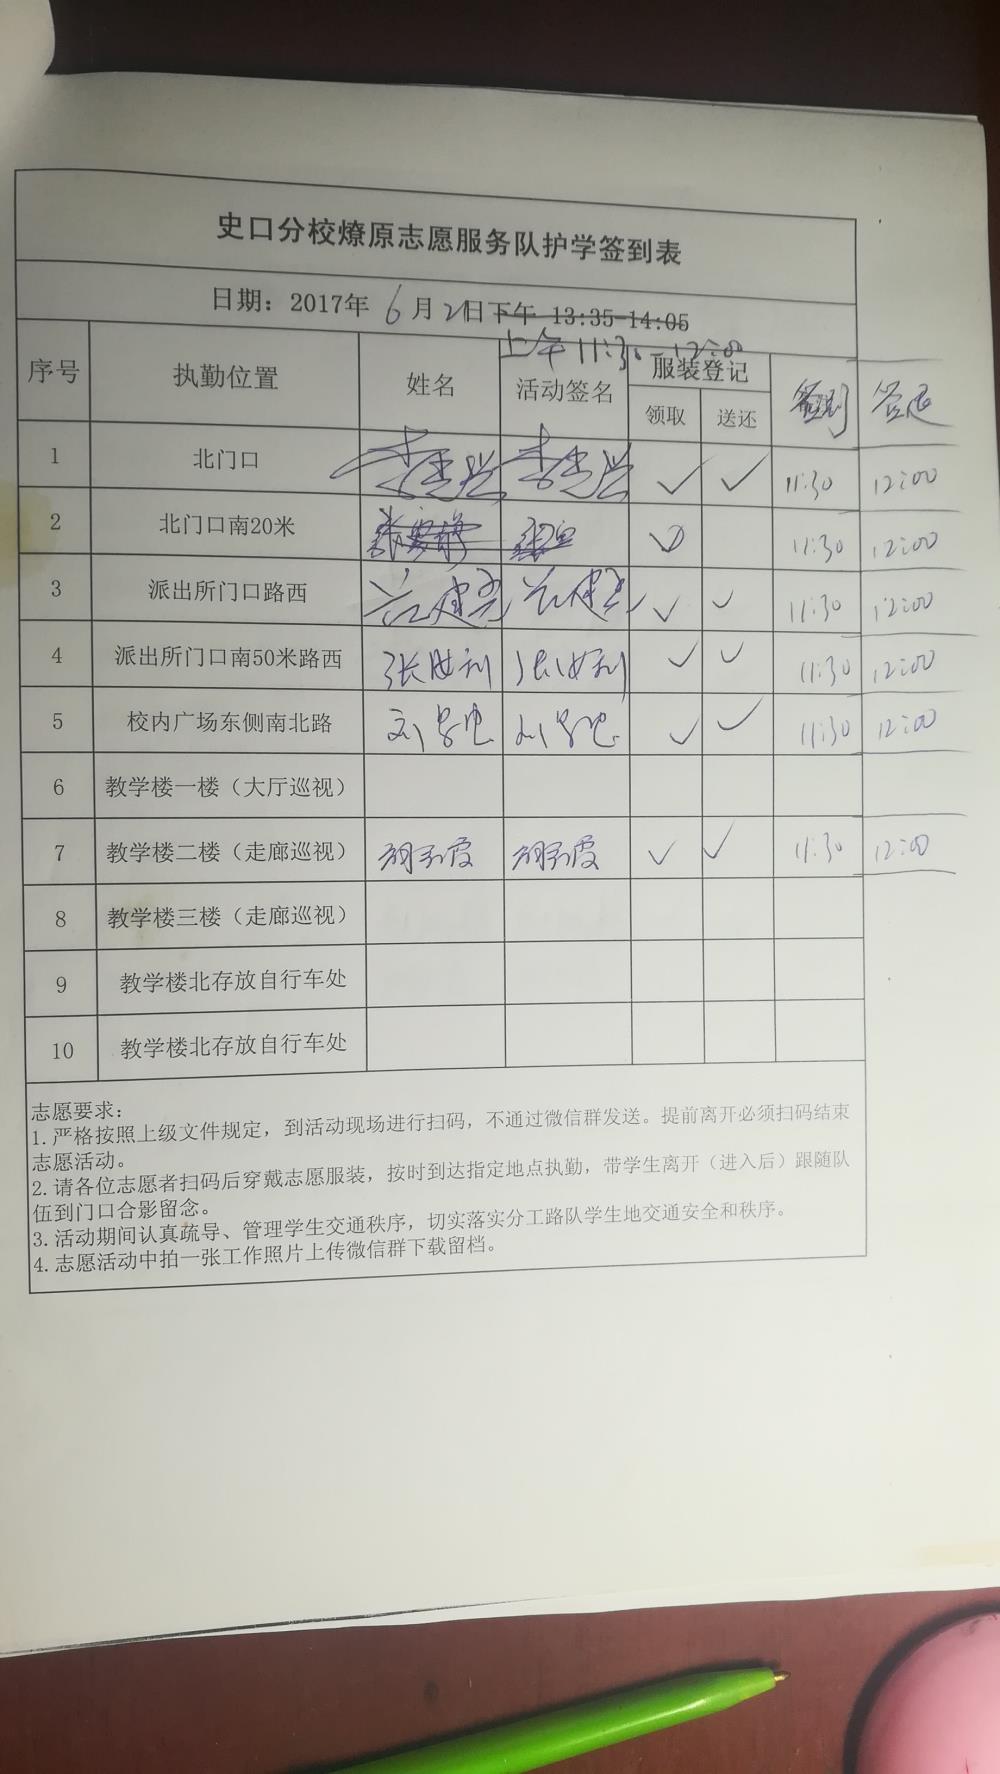 史口分校燎原志愿服务队护学签到表
日期：2017年 6月21日下午 13:35-14:05
上午 11:30-12:00
序号 执勤位置 姓名 活动签名 服装登记 签到 签退
领取 送还
1 北门口 ✓ ✓ 11:30 12:00
2 北门口南20米 ✓ 11:30 12:00
3 派出所门口路西 ✓ ✓ 11:30 12:00
4 派出所门口南50米路西 张胜利 张胜利 ✓ ✓ 11:30 12:00
5 校内广场东侧南北路 ✓ ✓ 11:30 12:00
6 教学楼一楼（大厅巡视）
7 教学楼二楼（走廊巡视） ✓ ✓ 11:30 12:00
8 教学楼三楼（走廊巡视）
9 教学楼北存放自行车处
10 教学楼北存放自行车处
志愿要求：
1.严格按照上级文件规定，到活动现场进行扫码，不通过微信群发送。提前离开必须扫码结束
志愿活动。
2.请各位志愿者扫码后穿戴志愿服装，按时到达指定地点执勤，带学生离开（进入后）跟随队
伍到门口合影留念。
3.活动期间认真疏导、管理学生交通秩序，切实落实分工路队学生地交通安全和秩序。
4.志愿活动中拍一张工作照片上传微信群下载留档。